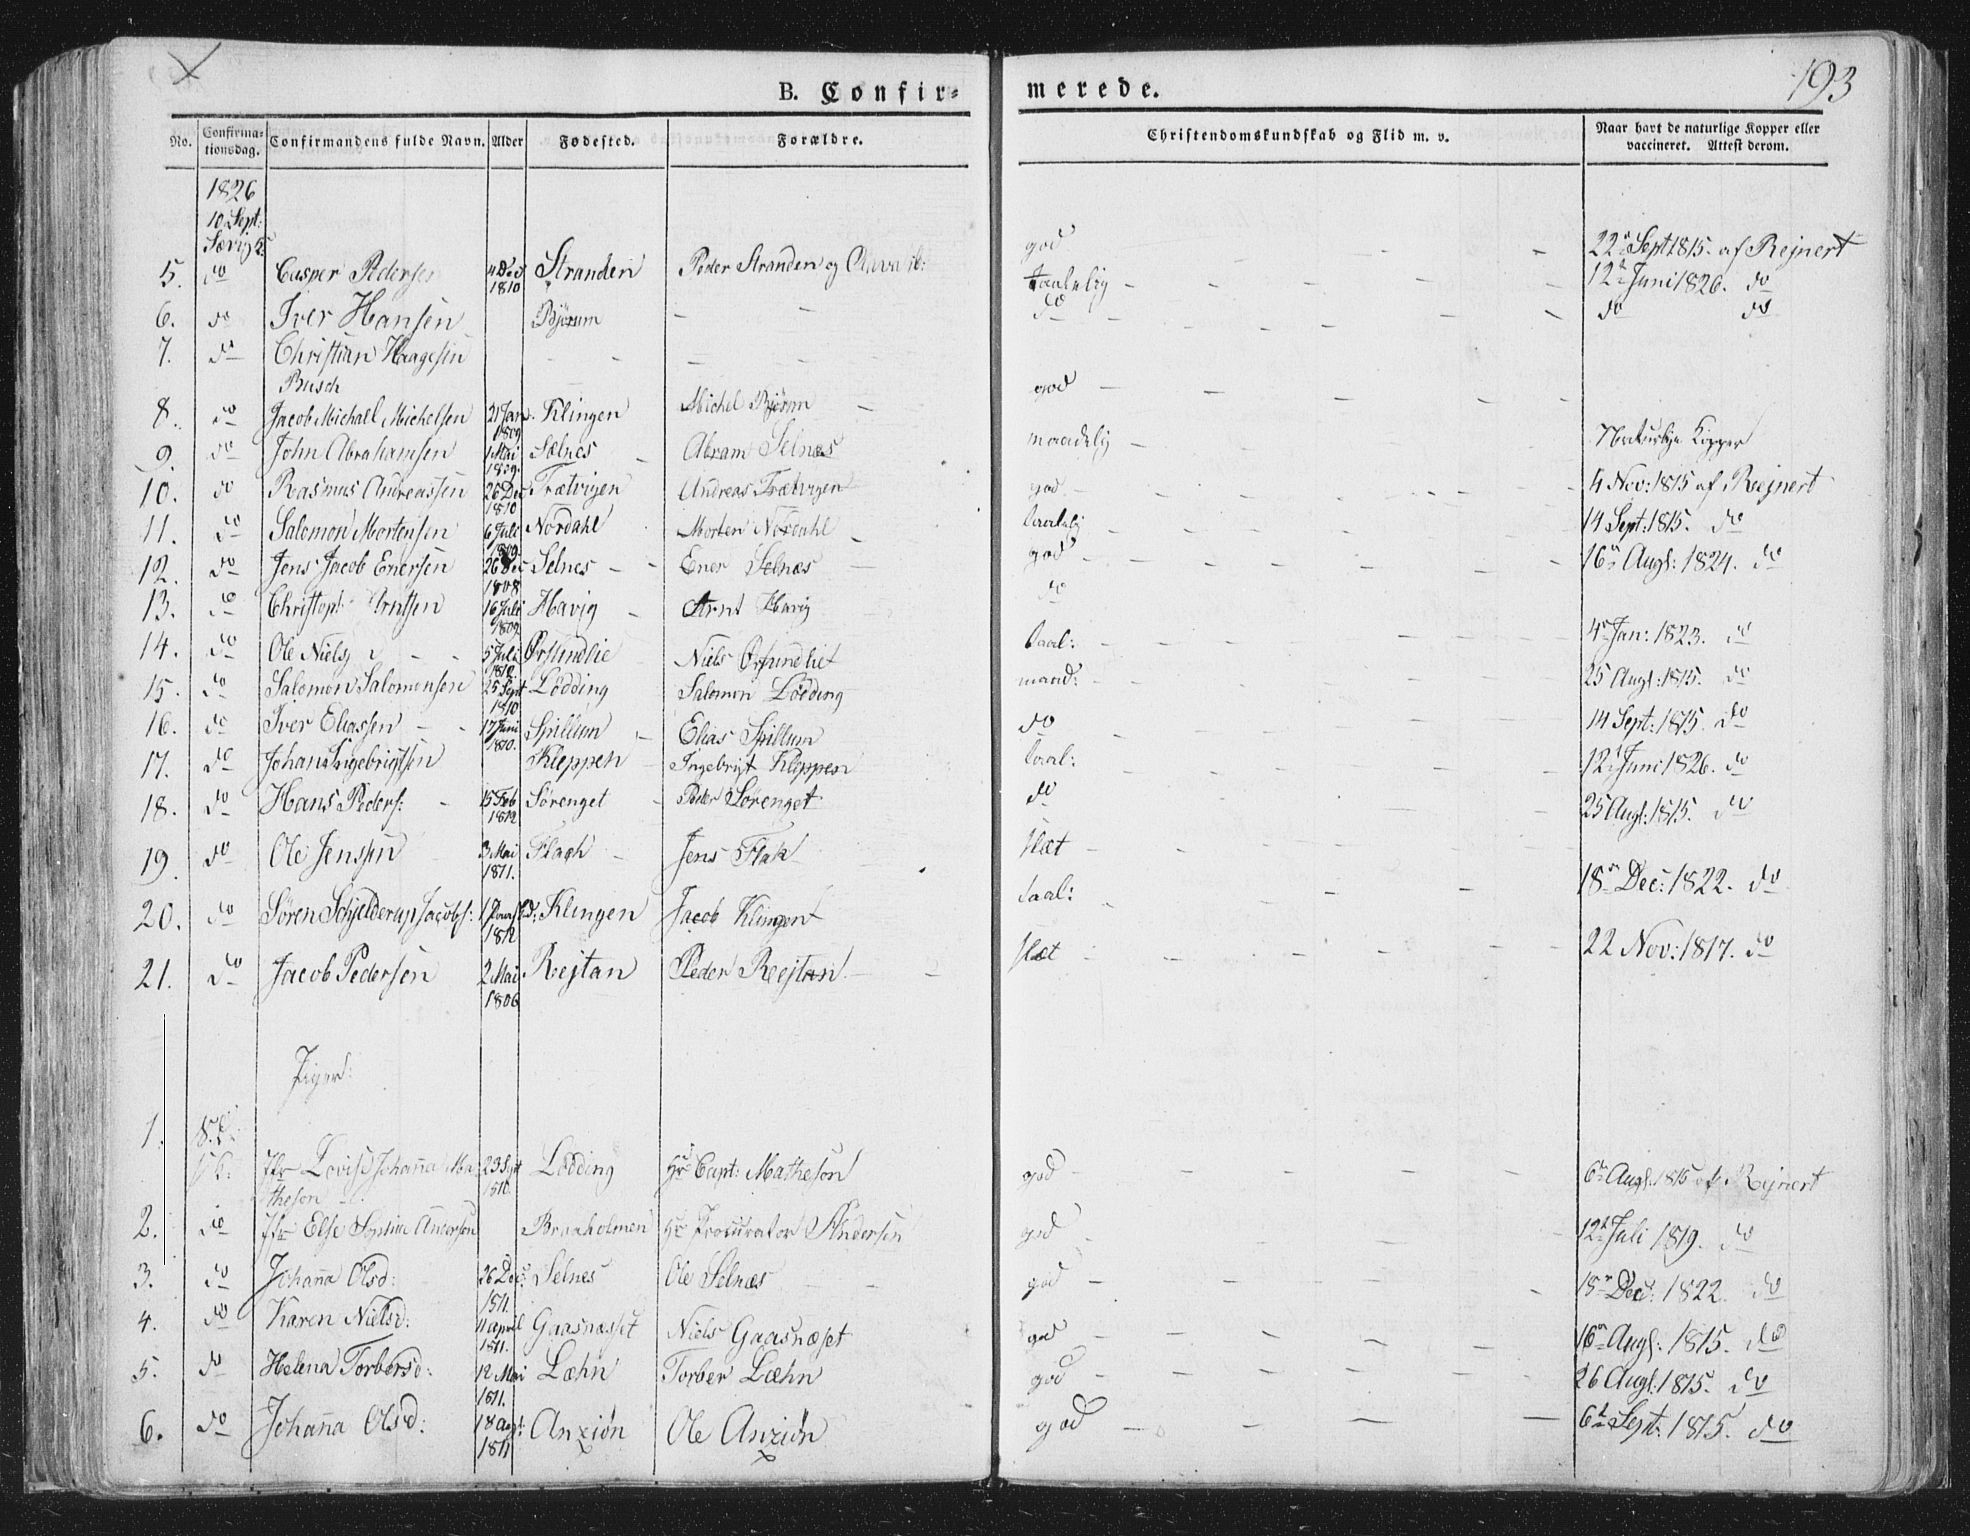 193
B. Confir-
merede.
No. Confirma-tionsdag. Confirmandens fulde Navn. Alder Fødested. Forældre. Christendomskundskab og Flid m. v. Naar havt de naturlige Kopper eller vaccineret. Attest derom.
1826
10 Sept:
god 22 Sept 1815. af Rejnert
5. do Casper Peder 4 Dec 1810 Stranden Peder Stranden og taalelig 12 Juni 1826. do
6. do Iver Hansen Bjørum do do do
7. do Christian Haagesen
Busch god
8. do Jacob Michael Michelsen 21 Jan 1809 Klingen Michel Bjørum
9. do John Abrahamsen 1 Mai 1809. Sælnes Abram Selnæs maadelig Naturlige Kopper
10. do Rasmus Andreassen 26 Dec 1810 Trætvigen Andreas Trætvigen god 4 Nov: 1815 af Rejnert
11. do Salomon Mortensen 6 Juli 1809. Nordahl Morten Nordahl taalelig 14 Sept. 1815. do
12. do Jens Jacob Enersen 26 Dec 1808 Selnes Ener Selnæs god 16 Augs: 1824. do
13. do Christoph Arntsen 16 Juli 1809 Havig Arnt Havig do
14. do Ole Niels 5 Juli 1810. Ørsundlie Niels Ørsundlie taal: 4 Jan: 1823. do
15. do Salomon Salomonsen 25 Sept 1810 Lødding Salomon Lødding maad: 25 Augs: 1815. do
16. do Iver Eliassen 17 Juni 1810. Spillum Elias Spillum do 14 Sept: 1815. do
17. do Johan Ingebrigtsen Kleppen Ingebrigt Kleppen taal: 12 Juni 1826. do
18. do Hans Peders: 15 Feb 1812 Sørenget Peder Sørenget do 25 Augs: 1815. do
19. do Ole Jensen 3 Mai 1811. Flach Jens Flak slæt
20. do Søren Schjelderup Jacobs: 1 1812 Klingen Jacob Klingen taal: 18 Dec: 1822. do
21. do Jacob Pedersen 2 Mai 1806 Rejtan Peder Rejtan slæt 22 Nov: 1817. do
Piger:
1. Jfr Lovise Johanna Ma- 23 Sept 1810. Lødding Hr Capt: Matheson god 6 Augs: 1815 af Rejnert
theson
2. do Jfr Else Sophie Andersen Braaholmen Hr Procurator Andersen god 12 Juli 1819. do
3. do Johanna Olsd: 26 Dec: 1811. Selnes Ole Selnæs god 18 Dec: 1822. do
4. do Karen Nielsd: 11 april 1811. Gaasnæsset Niels Gaasnæset god 16 Augs: 1815. do
5. do Helena Torbersd: 12 Mai 1811. Læhn Torber Læhn god 26 Augs: 1815. do
6. do Johanna Olsd: 18 Augs: 1811 Anziøn Ole Anziøn god 6 Sept: 1815. do